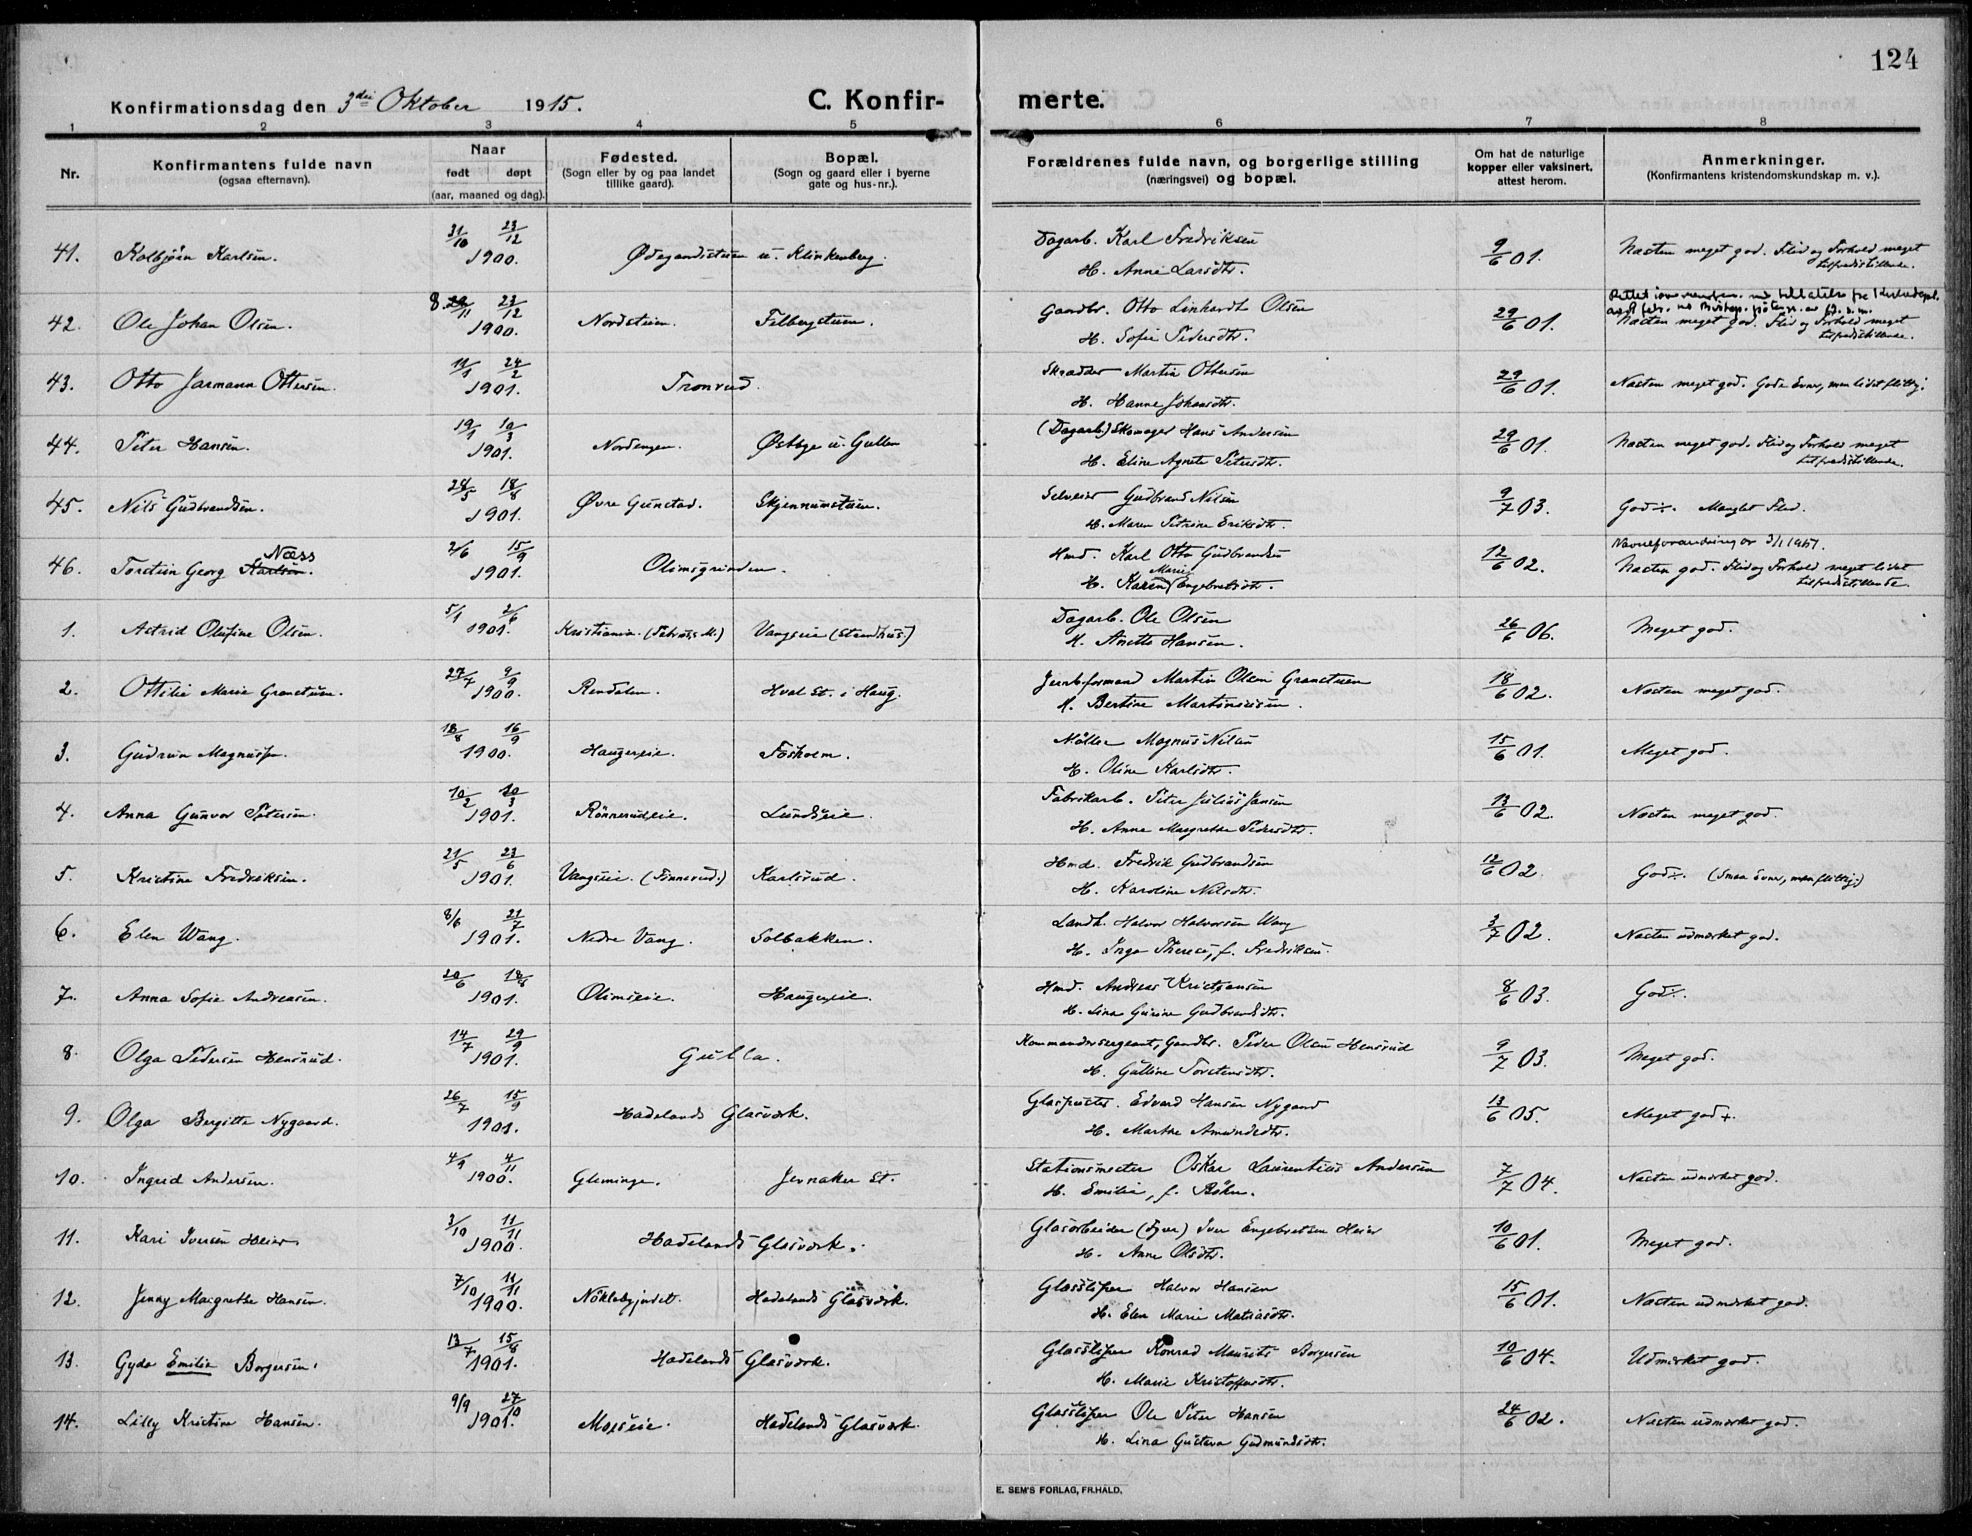 124
Konfirmationsdag den 3die Oktober 1915.
C. Konfirmerte.
1 2 3 4 5 6 7 8
Nr.
Konfirmantens fulde navn
(ogsaa efternavn).
Naar
født døpt
(aar, maaned og dag).
Fødested.
(Sogn eller by og paa landet
tillike gaard).
Bopæl.
(Sogn og gaard eller i byerne
gate og hus-nr.).
Forældrenes fulde navn, og borgerlige stilling
(næringsvei) og bopæl.
Om hat de naturlige
kopper eller vaksinert,
attest herom.
Anmerkninger.
(Konfirmantens kristendomskundskap m. v.).
41. Kolbjørn Karlsen. 31/10 23/12 1900. u. Klinkenberg. Dagarb. Karl Fredriksen 9/6 01. Næsten meget god. Flid og Forhold meget
H. Anne Larsdtr. tilfredsstillende.
42. Ole Johan Olsen. 8. 11 23/12 1900. Nordstuen. Filbergstuen. Gaardbr. Otto Linhardt Olsen 29/6 01. Næsten meget god. Flid og Forhold meget
H. Sofie Pedersdtr. tilfredsstillende.
43. Otto Jarmann Ottersen. 11/1 24/2 1901. Tronrud. Skrædder Martin Ottersen 29/6 01. Næsten meget god. Gode Evner, men lidet flittig.
H. Hanne Johansdtr.
44. Peter Hansen. 19/1 10/3 1901. Nordengen. Østbye u. Gullen (Dagarb.) Skomager Hans Andersen 29/6 01. Næsten meget god. Flid og Forhold meget
H. Eline Agnete Petersdtr. tilfredsstillende.
45. Nils Gudbrandsen. 28/5 18/8 1901. Øvre Gunstad. Skjennumstuen. Selveier Gudbrand Nilsen 9/7 03. God÷. Manglet Flid.
H. Maren Petrine Eriksdtr.
Næss Navneforandring av 3/1 1951.
46. Torstein Georg Karlsen. 2/6 15/9 1901. Olimsgrinden. Hmd. Karl Otto Gudbrandsen 12/6 02. Næsten god. Flid og Forhold meget lidet
H. Karen Marie Engebretsdtr. tilfredsstillende.
1. Astrid Olufine Olsen. 5/1 2/6 1901. Kristiania. Vangseie (Strandhus) Dagarb. Ole Olsen 26/6 06. Meget god.
M. Anette Hansen.
2. Ottilie Marie Granstuen. 27/7 9/9 1900. Rendalen. Hval St. i Haug. Jernbformand Martin Olsen Granstuen 18/6 02. Næsten meget god.
M. Bertine Martinussen.
3. Gudrun Magnussen. 18/8 16/9 1900. Haugerseie. Fosholm. Møller Magnus Nilsen 15/6 01. Meget god.
H. Oline Karlsdtr.
4. Anna Gunvor Petersen. 10/2 10/3 1901. Rønnerudseie. Lundseie. Fabrikarb. Peter Julius Jansen 13/6 02. Næsten meget god.
H. Anne Margrethe Pedersdtr.
5. Kristine Fredriksen. 21/5 23/6 1901. Vangseie. (Finnerud.) Karlsrud. Hmd. Fredrik Gudbrandsen 12/6 02. God÷. (Smaa Evner, men flittig.)
H. Karoline Nilsdtr.
6. Elen Wang. 8/6 21/7 1901. Nedre Vang. Solbakken. Landh. Halvor Halvorsen Wang 3/7 02. Næsten udmerket god.
H. Inga Therese, f. Fredriksen.
7. Anna Sofie Andreasen. 20/6 18/8 1901. Olimseie. Haugerseie. Hmd. Andreas Kristiansen 8/6 03. God÷.
H. Lina Gurine Gudbrandsdtr.
8. Olga Pedersen Hensrud. 14/7 29/9 1901. Gulla. Kommandersergeant, Gaardbr. Peder Olsen Hensrud 9/7 03. Meget god.
H. Gulline Torstensdtr.
9. Olga Bergitte Nygaard. 26/7 15/9 1901. Hadelands Glasværk. Glaspuster. Edvard Hansen Nygaard 13/6 05. Meget god+.
H. Marthe Amundsdtr.
10. Ingrid Andersen. 4/9 4/11 1900. Gleminge. Jevnaker St. Stationsmester Oskar Laurentius Andersen 7/7 04. Næsten udmerket god.
H. Emilie, f. Bøhn.
11. Kari Iversen Heier. 3/10 11/11 1900. Hadelands Glasværk. Glasarbeider (Fyrer) Iver Engebretsen Heier 10/6 01. Meget god.
H. Anne Olsdtr.
12. Jenny Margrethe Hansen. 7/10 11/11 1900. Nøklebyjordet. Hadelands Glasværk. Glassliper Halvor Hansen 15/6 01. Næsten udmerket god.
H. Elen Marie Matiasdtr.
13. Gyda Emilie Borgersen. 13/7 15/8 1901. Hadelands Glasværk. Glassliper Konrad Maurits Borgersen 10/6 04. Udmerket god.
H. Marie Kristoffersdtr.
14. Lilly Kristine Hansen. 9/9 27/10 1901. Moseie. Hadelands Glasværk. Glassliper Ole Peter Hansen 24/6 02. Næsten udmerket god.
H. Lina Gustava Gudmundsdtr.
E. SEM'S FORLAG, FR.HALD.